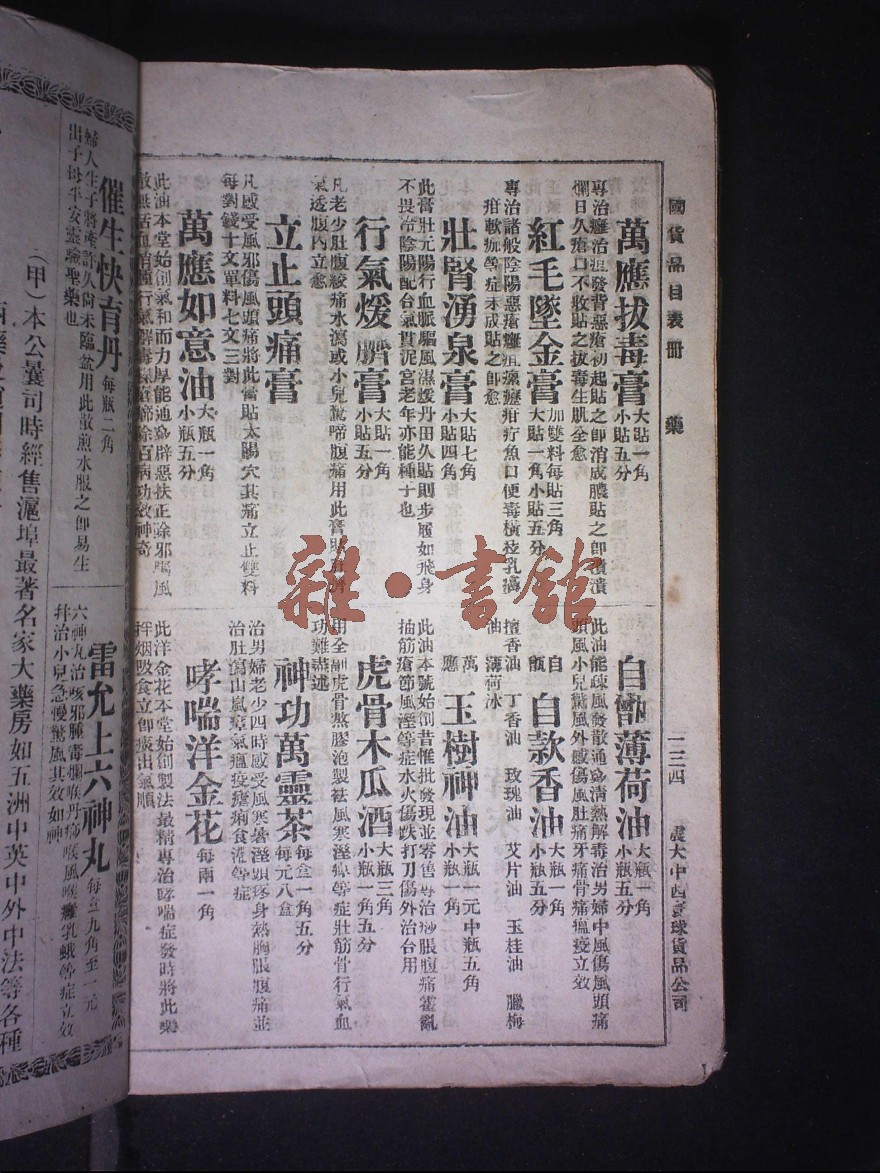 國貨品目表冊
藥
二三四
萬應拔毒膏 大貼一角 小貼五分
專治癰治疽發背惡瘡初起貼之卽消成膿貼之卽潰
爛日久瘡口不收貼之拔毒生肌全愈
紅毛墜金膏 加雙料每貼三角 大貼一角小貼五分
專治諸般陰陽惡瘡癰疽
等症未成貼之卽愈
壯腎湧泉膏 大貼七角 小貼四角
此膏壯元陽行血脈驅風濕煖丹田久貼則步履如飛身
不畏冷陰陽配合氣貫泥宮老年亦能種子也
行氣煖臍膏 大貼一角 小貼五分
凡老少肚腹絞痛水瀉或小兒驚啼腹痛用此膏
氣透腹內立愈
立止頭痛膏
凡感受風邪傷風頭痛將此膏貼太陽穴其痛立止雙料
每對錢十文單料七文三對
萬應如意油 大瓶一角 小瓶五分
此油本堂始創氣和而力厚能通竅辟惡扶正除邪驅風
除百病功效神奇
自製薄荷油 大瓶一角 小瓶五分
此油能疎風發散通竅清熱解毒治男婦中風傷風頭痛
頭風小兒驚風外感傷風肚痛牙痛骨痛瘟疫立效
自甑 自款香油 大瓶一角 小瓶五分
檀香油 丁香油 玫瑰油 艾片油 玉桂油 臘梅
油 薄荷冰
萬應 玉樹神油 大瓶一元中瓶五角 小瓶一角
此油本號始創昔惟批發現並零售專治痧脹腹痛霍亂
抽筋瘡節風溼等症水火傷跌打刀傷外治合用
虎骨木瓜酒 大瓶三角 小瓶一角五分
用全副虎骨熬膠泡製祛風寒溼痺等症壯筋骨行氣血
功難盡述
神功萬靈茶 每盒一角五分 每元八盒
治男婦老少四時感受風寒暑溼頭疼身熱胸脹腹痛並
治肚瀉山嵐瘴氣瘟疫瘧痢食滯等症
哮喘洋金花 每兩一角
此洋金花本堂始創製法最精專治哮喘症發時將此藥
拌烟吸食立卽痰出氣順
催生快育丹 每瓶二角
婦人生子將產許久尙未臨盆用此散煎水服之卽易生
出子母平安靈驗聖藥也
雷允上六神丸 每盒九角至一元
六神丸治咳邪腫毒爛喉丹痧喉風喉癰乳蛾等症立效
幷治小兒急慢驚風其效如神
(甲)本公司曩時經售滬埠最著名家大藥房如五洲中英中外中法等各種
雜·書館